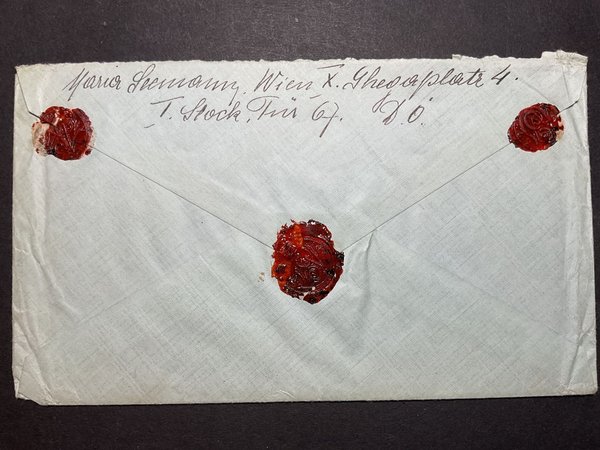 Maria Seemann, Wien, X. Ghegaplatz 4.
I. Stock, Tür 67. D.Ö.